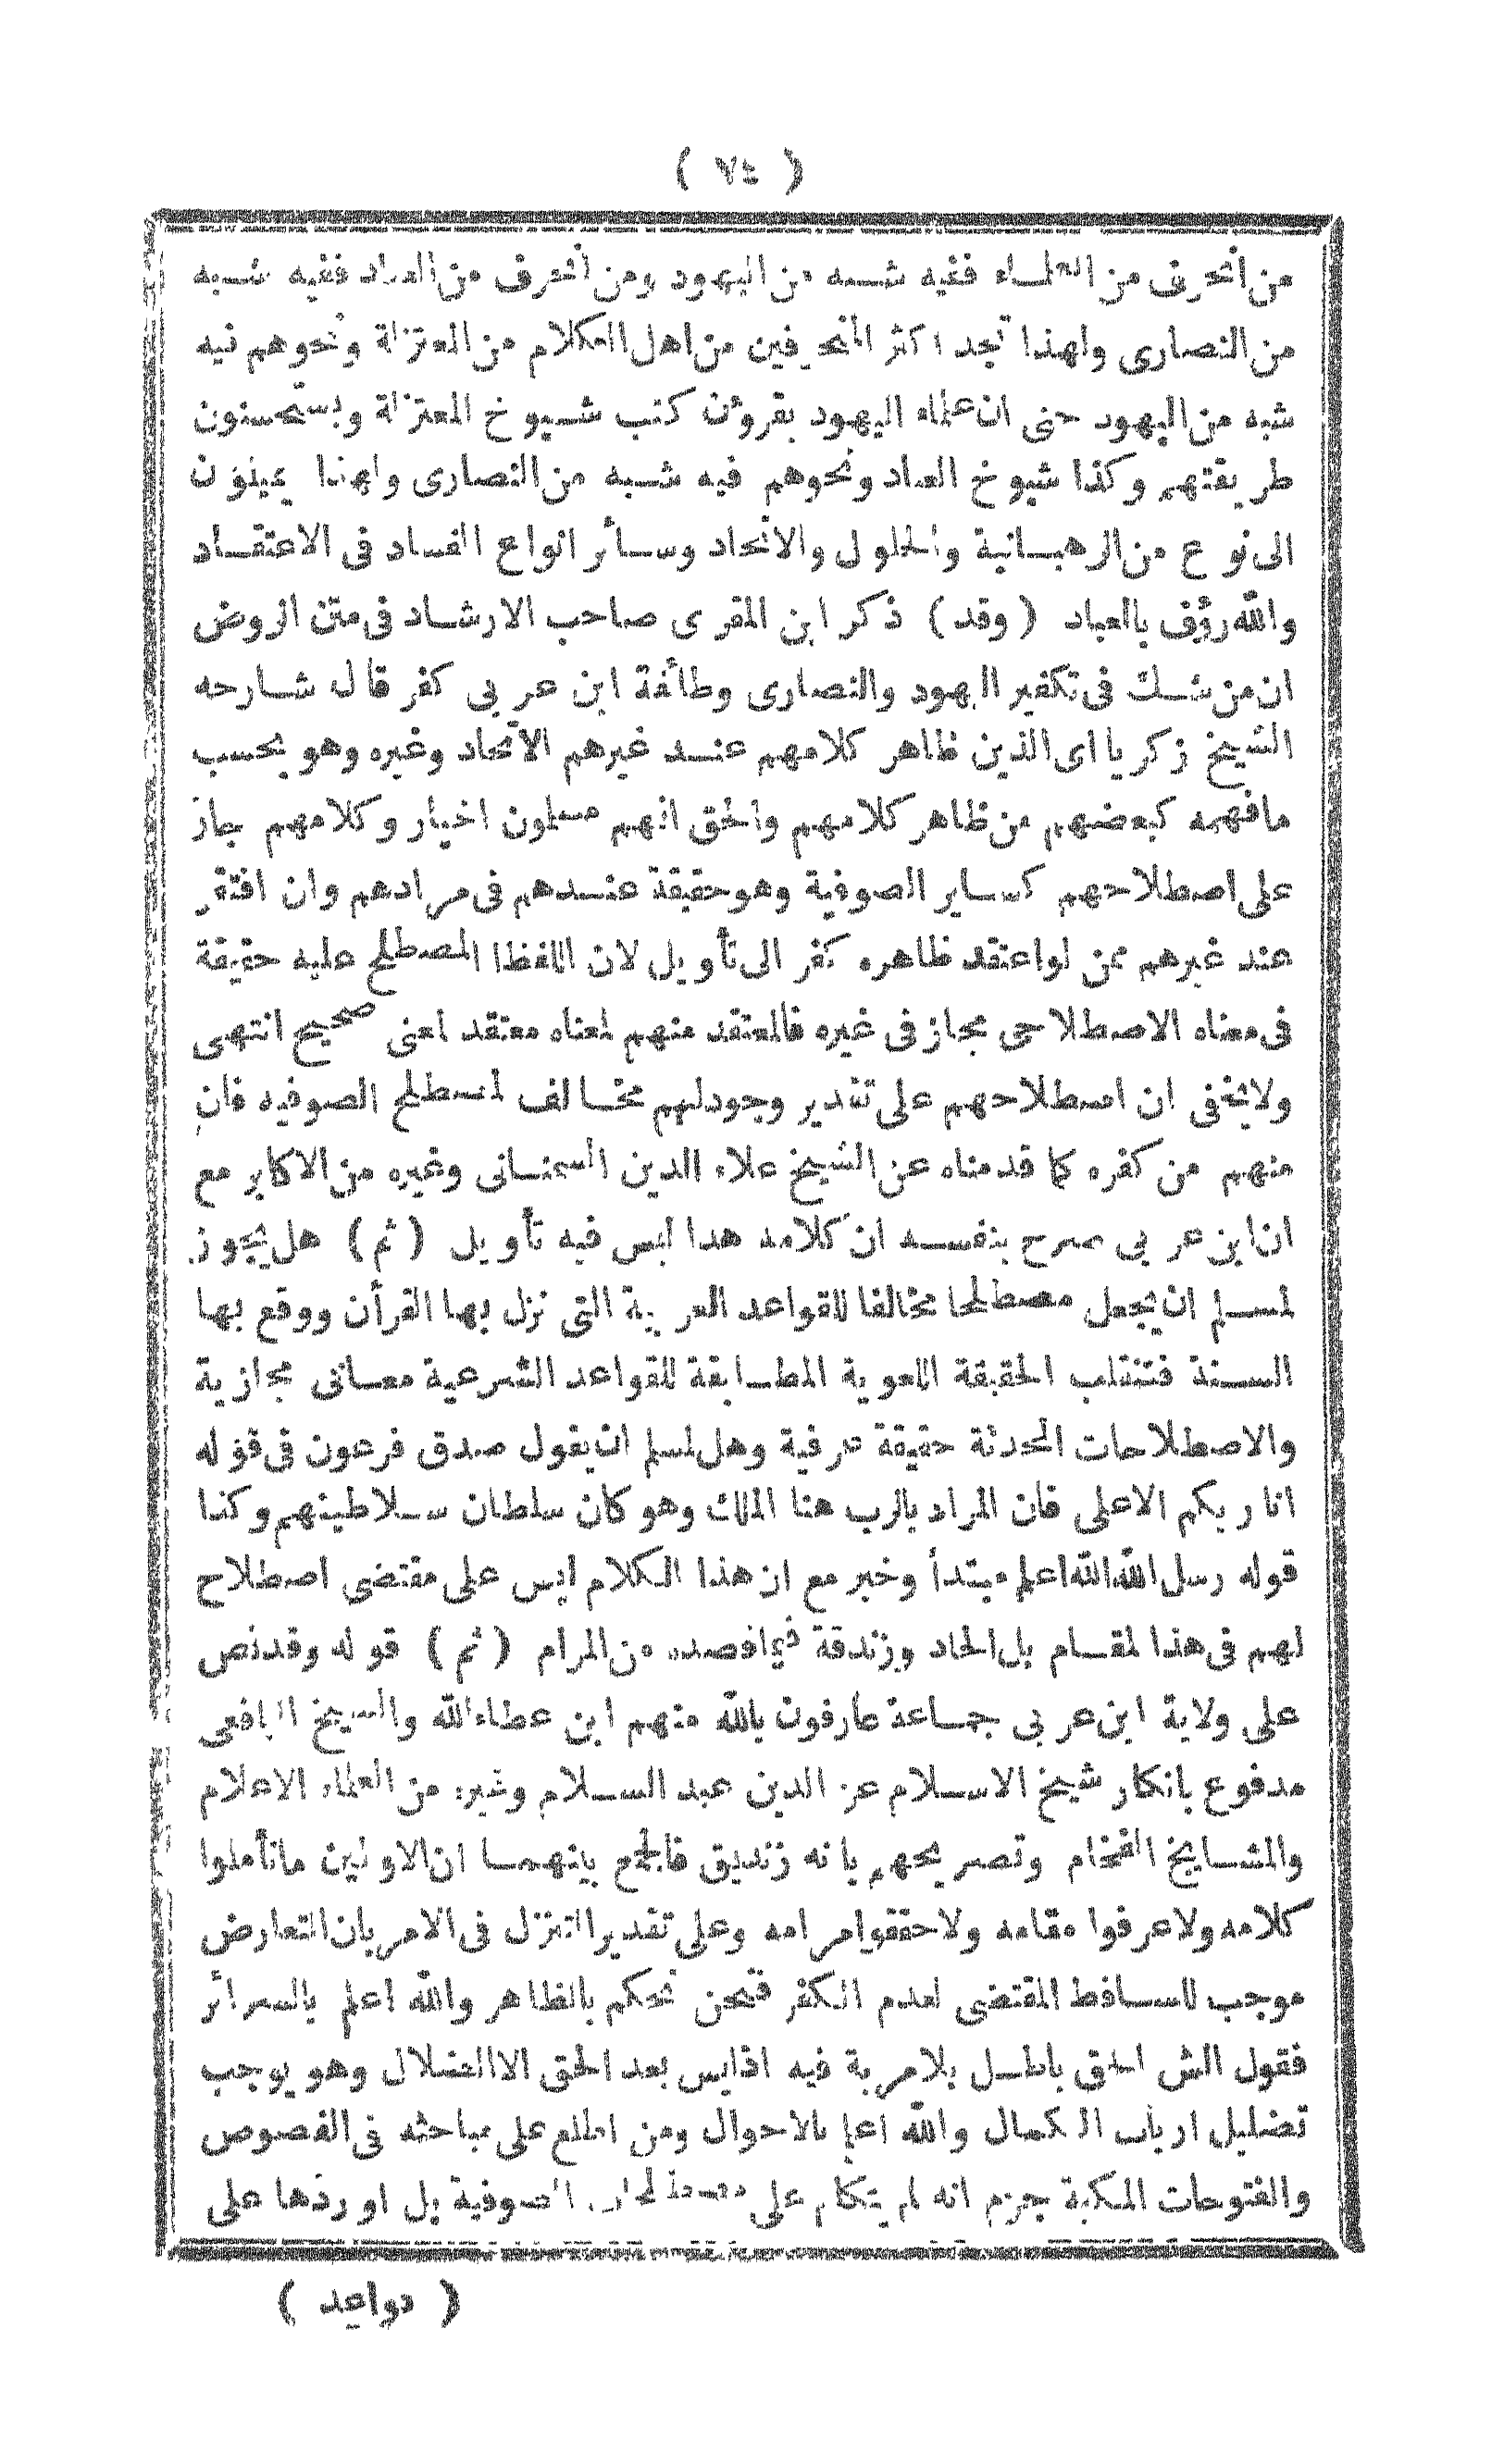 ( ٧٤ )
من انحرف من العلماء ففيه شبه من اليهود ومن انحرف من العباد ففيه شبه
من النصارى ولهذا تجد اكثر المنحرفين من اهل الكلام من المعتزلة ونحوهم فيه
شبه من اليهود حتى ان علماء اليهود يقرؤن كتب شيوخ المعتزلة ويستحسنون
طريقتهم وكذا شيوخ العباد ونحوهم فيه شبه من النصارى ولهذا يميلون
الى نوع من الرهبانية والحلول والاتحاد وسائر انواع الفساد فى الاعتقاد
والله رؤف بالعباد (وقد) ذكر ابن المقرى صاحب الارشاد فى متن الروض
ان من شك فى تكفير اليهود والنصارى وطائفة ابن عربى كفر قال شارحه
الشيخ زكريا اى الذين ظاهر كلامهم عند غيرهم الاتحاد وغيره وهو بحسب
مافهمه كبعضهم من ظاهر كلامهم والحق انهم مسلمون اخيار وكلامهم جاز
على اصطلاحهم كساير الصوفية وهو حقيقة عندهم فى مرادهم وان افتقر
عند غيرهم ممن لو اعتقد ظاهره كفر الى تأويل لان اللفظا المصطلح عليه حقيقة
فى معناه الاصطلاحى مجاز فى غيره فالمعتقد منهم لمعناه معتقد لمعنى صحيح انتهى
ولايخفى ان اصطلاحهم على تقدير وجودلهم مخالف لمصطلح الصوفيه فان
منهم من كفره كما قدمناه عن الشيخ علاء الدين السمنانى وغيره من الاكابر مع
ان ابن عربى صرح بنفسه ان كلامه هذا ليس فيه تأويل (ثم) هل يجوز
لمسلم ان يجعل مصطلحا مخالفا للقواعد العربية التى نزل بها القرأن ووقع بها
السنة فتنقلب الحقيقة اللغوية المطابقة للقواعد الشرعية معانى مجازية
والاصطلاحات المحدثة حقيقة عرفية وهل لمسلم ان يقول صدق فرعون فى قوله
انا ربكم الاعلى فان المراد بالرب هنا الملك وهو كان سلطان سلاطينهم وكذا
قوله رسل الله الله اعلم مبتدأ وخبر مع ان هذا الكلام ليس على مقتضى اصطلاح
لهم فى هذا لمقام بل الحاد وزندقة فيما قصده من المرام (ثم) قوله وقد نص
على ولاية ابن عربى جماعة عارفون بالله منهم ابن عطاءالله والشيخ اليافعى
مدفوع بانكار شيخ الاسلام عز الدين عبد السلام وغيره من العلماء الاعلام
والمشايخ الفخام وتصريحهم بانه زنديق فالجمع بينهما ان الاولين ماتأملوا
كلامه ولاعرفوا مقامه ولاحققوا مرامه وعلى تقدير التنزل فى الامر بان التعارض
موجب للتساقط المقتضى لعدم الكفر فنحن نحكم بالظاهر والله اعلم بالسرائر
فقول الش الحق باطل بلامرية فيه اذ ليس بعد الحق الا الضلال وهو يوجب
تضليل ارباب الكمال والله اعلم بالاحوال ومن اطلع على مباحثه فى الفصوص
والفتوحات المكية جزم انه لم يتكلم على الصوفية بل اوردها على